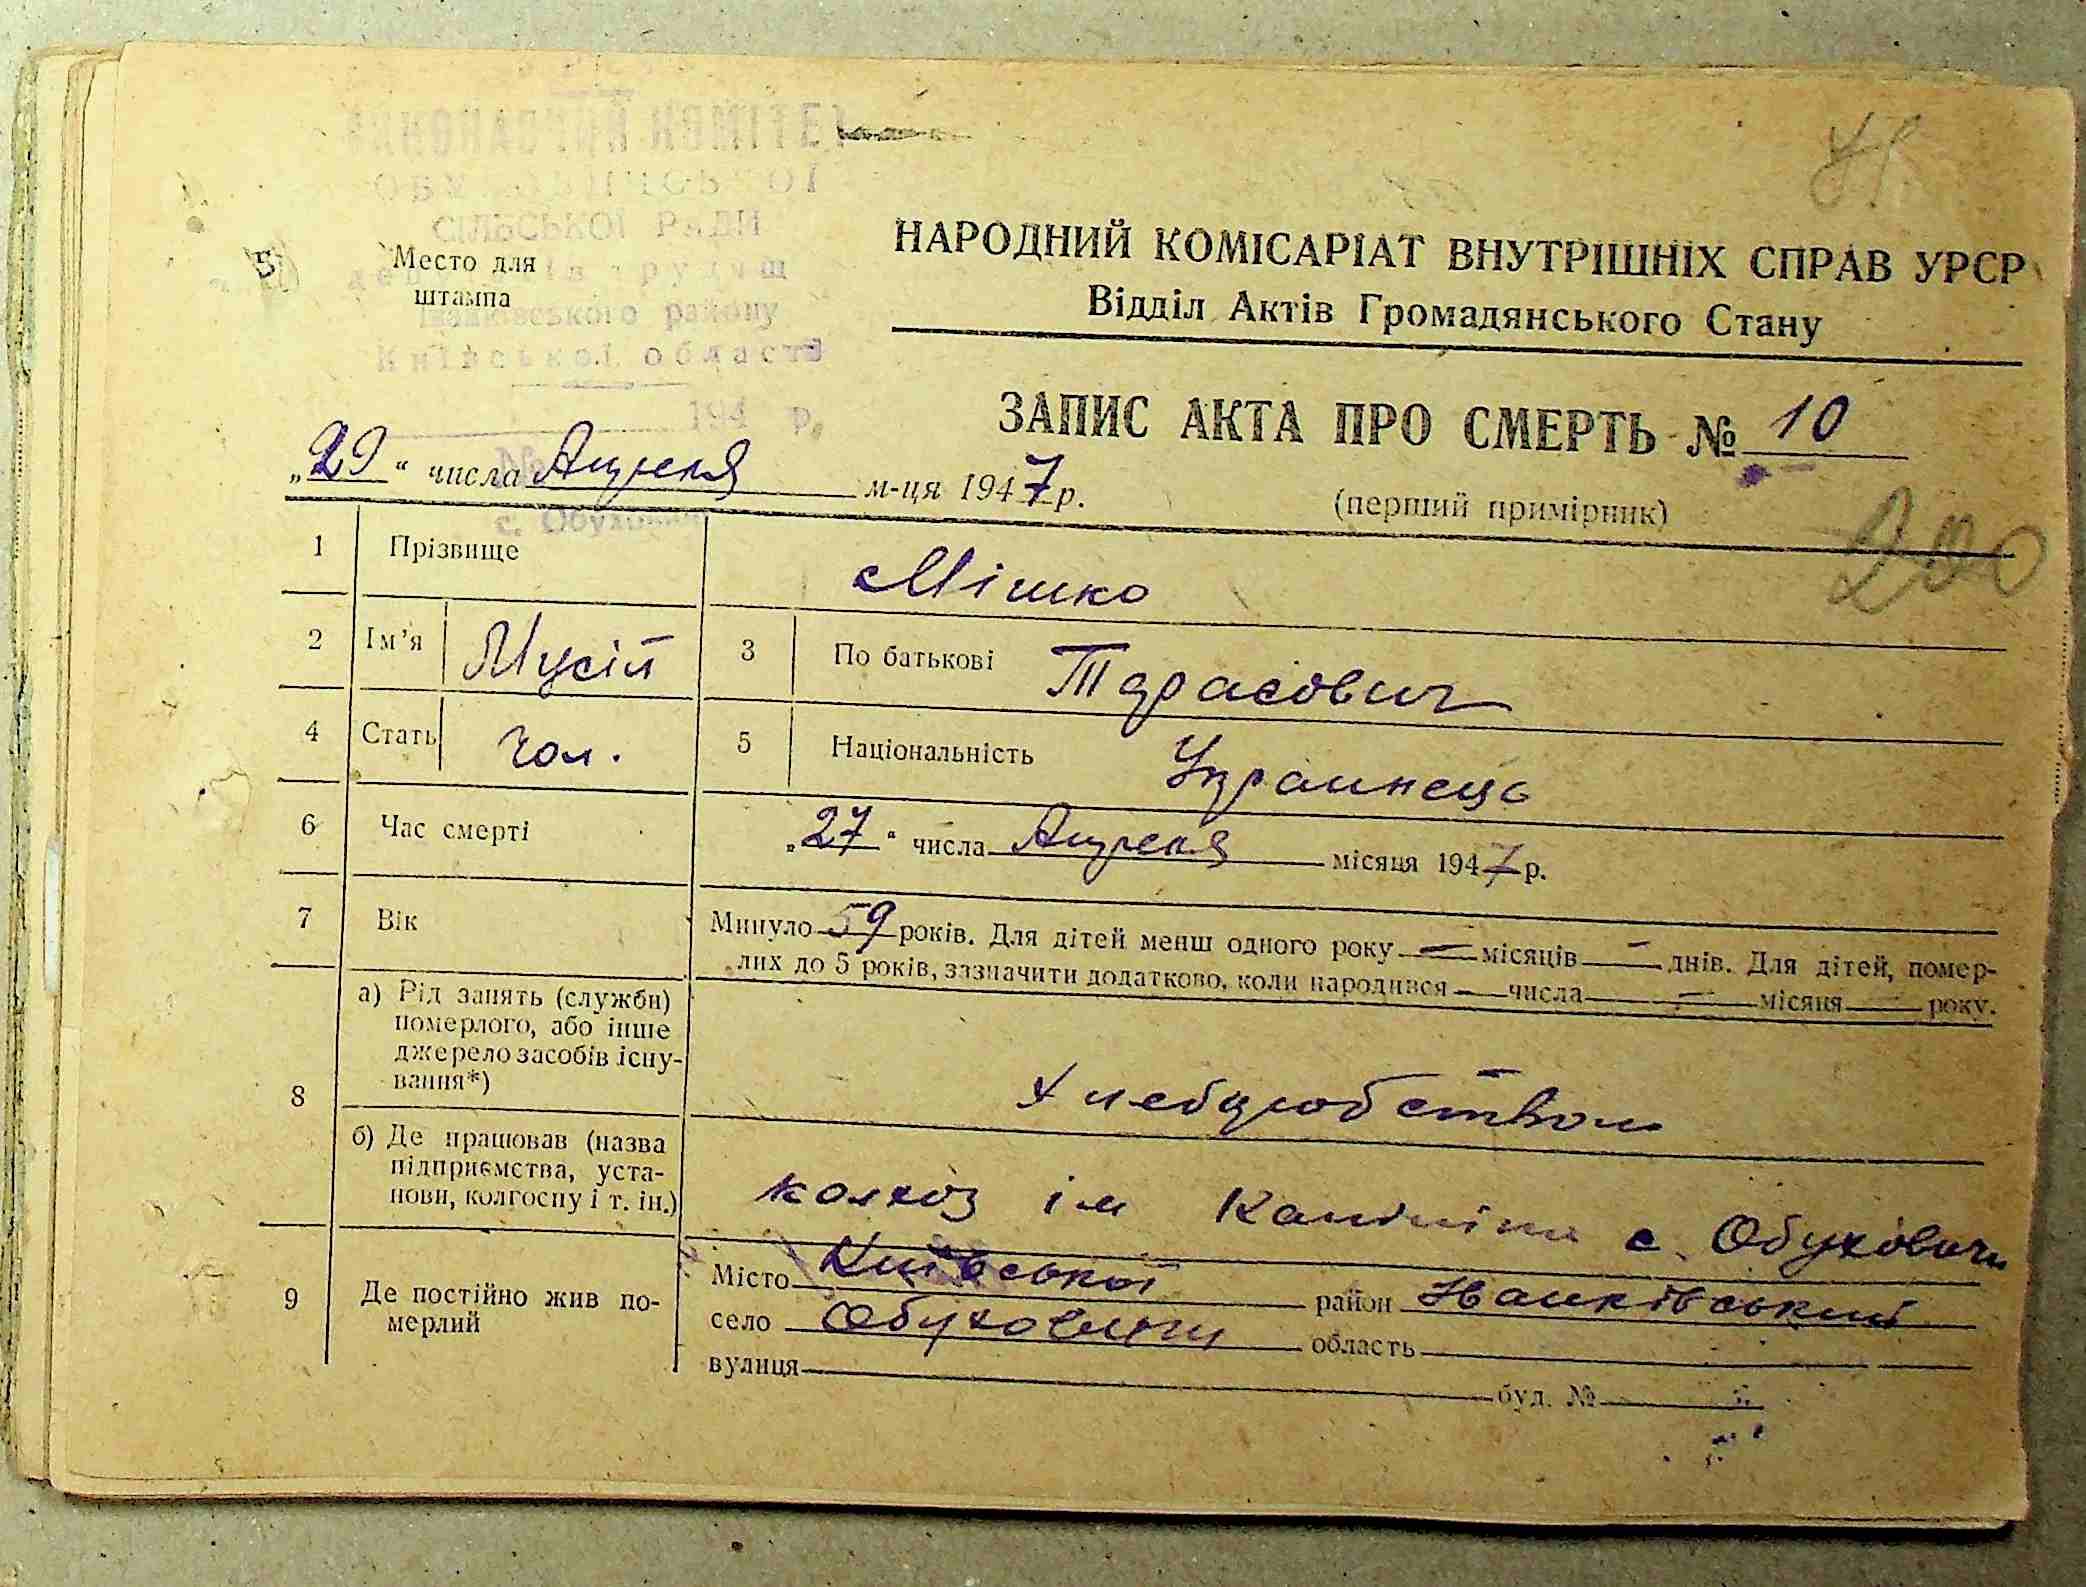 ВИКОНАВЧИЙ КОМІТЕТ
ОБУХОВИЦЬКОЇ
СІЛЬСЬКОЇ РАДИ
депутатів трудящ
Іванківського району
Київської області
194 р.
№
с. Обухови
Место для
штампа
НАРОДНИЙ КОМІСАРІАТ ВНУТРІШНІХ СПРАВ УРСР
Відділ Актів Громадянського Стану
ЗАПИС АКТА ПРО СМЕРТЬ № 10
„29“ числа Апреля м-ця 1947 р.
(перший примірник)
200
1 Прізвище Мішко
2 Ім’я Мусій 3 По батькові Тарасович
4 Стать чол. 5 Національність Украинець
6 Час смерті „27“ числа Апреля місяця 1947 р.
7 Вік Минуло 59 років. Для дітей менш одного року — місяців — днів. Для дітей, помер-
лих до 5 років, зазначити додатково, коли народився — числа — місяця — року.
8 а) Рід занять (служби)
померлого, або інше
джерело засобів існу-
вання*)
Хлеборобством
б) Де працював (назва
підприємства, уста-
нови, колгоспу і т. ін.)
колхоз ім Калініна с. Обуховичи
9 Де постійно жив по-
мерлий
Місто Київської район Иванківський
село Обуховичи область
вулиця буд. №